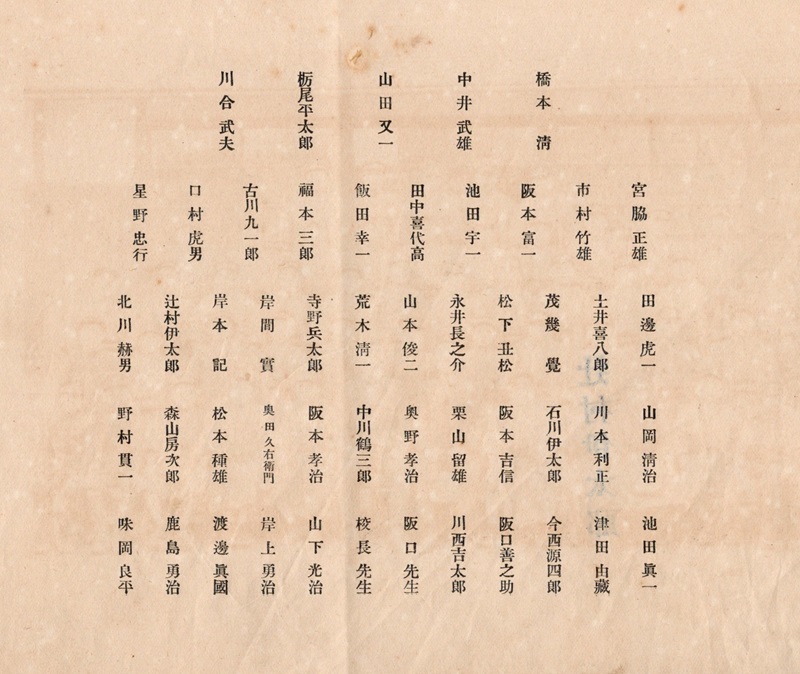 橋本淸
中井武雄
山田又一
栃尾平太郎
川合武夫
宮脇正雄
市村竹雄
阪本富一
池田宇一
田中喜代高
飯田幸一
福本三郎
古川九一郎
口村虎男
星野忠行
田邊虎一
土井喜八郎
茂幾覺
松下丑松
永井長之介
山本俊二
荒木淸一
寺野兵太郎
岸間實
岸本記
辻村伊太郎
北川赫男
山岡淸治
川本利正
石川伊太郎
阪本吉信
栗山留雄
奥野孝治
中川鶴三郎
阪本孝治
奥田久右衞門
松本種雄
森山房次郎
野村貫一
池田眞一
津田由藏
今西源四郎
阪口善之助
川西吉太郎
阪口先生
校長先生
山下光治
岸上勇治
渡邊眞國
鹿島勇治
味岡良平